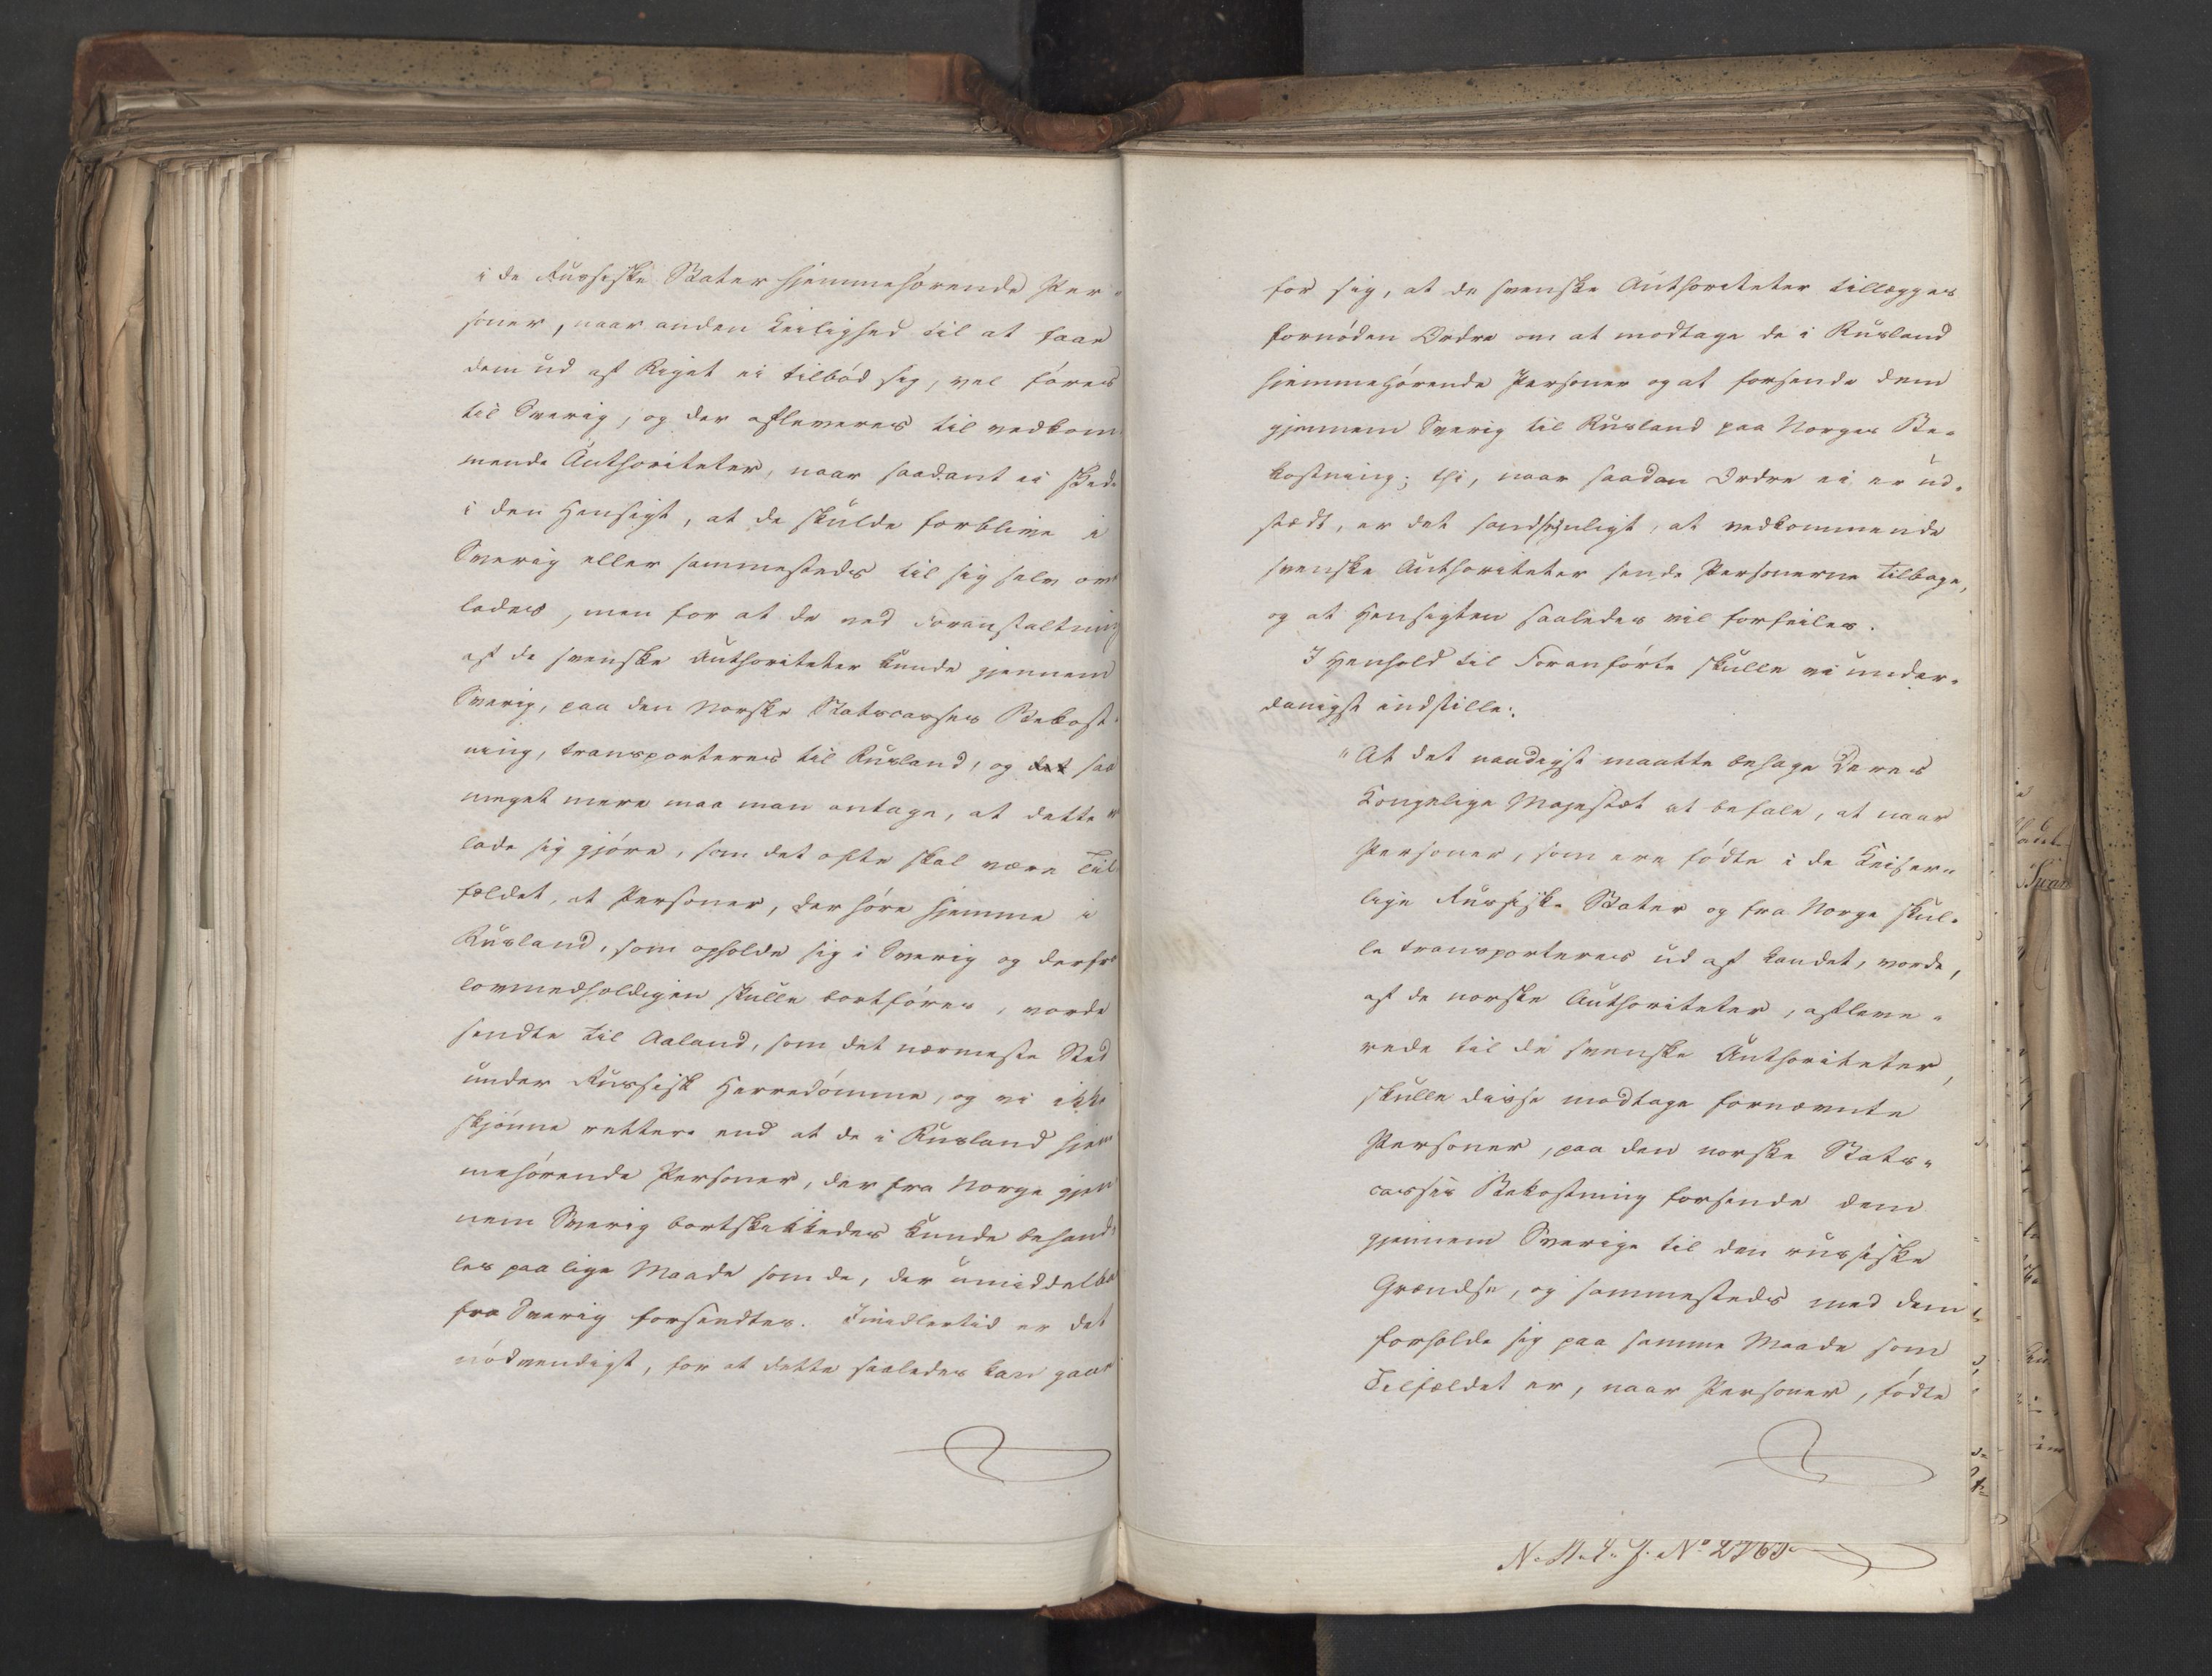 i de Russiske Stater hjemmehørende Per-
soner, naar anden Leilighed til at faae
dem ud af Riget ei tilbød sig, vel føres
til Sverig, og der afleveres til vedkom-
mende Authoriteter, naar saadant ei skede
i den Hensigt, at de skulde forblive i
Sverig eller sammesteds til sig selv over
lades, men for at de ved Foranstaltning
af de svenske Authoriteter kunde gjennem
Sverig, paa den Norske Statscasses Bekost-
ning, transporteres til Rusland, og saa
meget mere maa man antage, at dette
lade sig gjøre, som det ofte skal være Til-
fældet, at Personer, der høre hjemme i
Rusland, som opholde sig i Sverig og derfra
lovmedholdigen skulle bortføres, vorde
sendte til Aaland, som det nærmeste Sted
under Russisk Herredømme, og vi ikke
skjønne rettere end at de i Rusland hjem
mehørende Personer, der fra Norge gjen
nem Sverig bortskikkedes kunde behand-
les paa lige Maade som de, der umiddelba
fra Sverig forsendtes. Imidlertid er det
nødvendigt, for at dette saaledes kan gaae
for sig, at de svenske Authoriteter tillægges
fornøden Ordre om at modtage de i Rusland
hjemmehørende Personer og at forsende dem
gjennem Sverig til Rusland paa Norges Be-
kostning; thi, naar saadan Ordre ei er ud-
stædt, er det sandsynligt, at vedkommende
svenske Authoriteter sende Personerne tilbage,
og at Hensigten saaledes vil forfeiles.
I Henhold til Foranførte skulle vi under-
danigst indstille:
"At det naadigst maatte behage Deres
Kongelige Majestæt at befale, at naar
Personer, som ere fødte i de Keiser-
lige Russiske Stater og fra Norge skul-
le transporteres ud af Landet, vorde,
af de norske Authoriteter, afleve-
rede til de svenske Authoriteter,
skulle disse modtage fornævnte
Personer, paa den norske Stats-
casses Bekostning forsende dem
gjennem Sverige til den russiske
Grændse, og sammesteds med dem
forholde sig paa samme Maade som
Tilfældet er, naar Personer, fødte